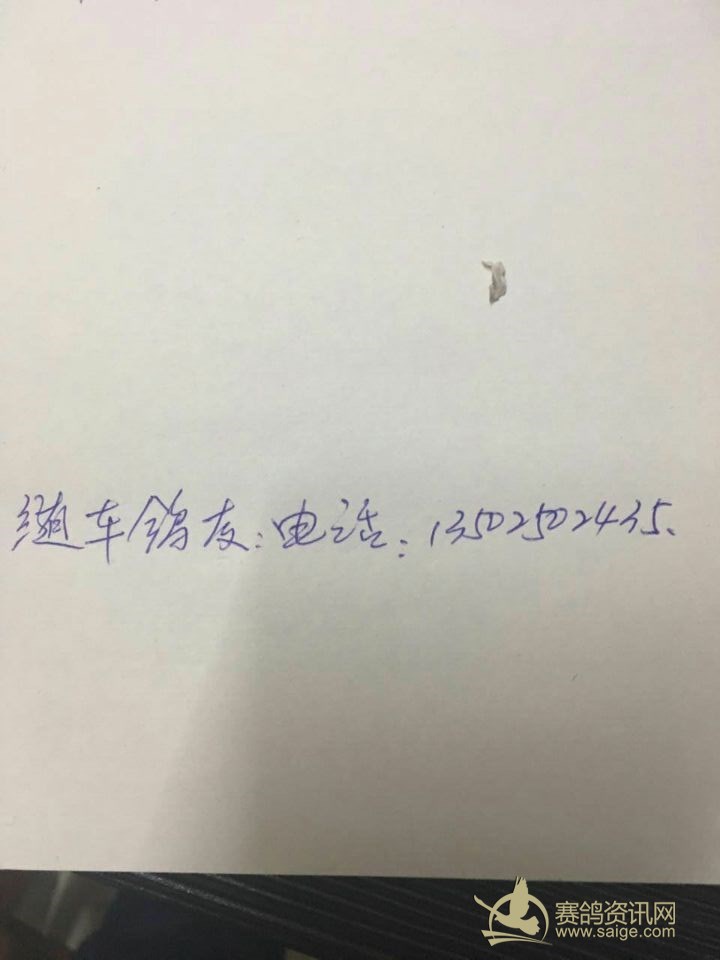 车鸽友:电话:13502502435.
赛鸽资讯网
www.saige.com